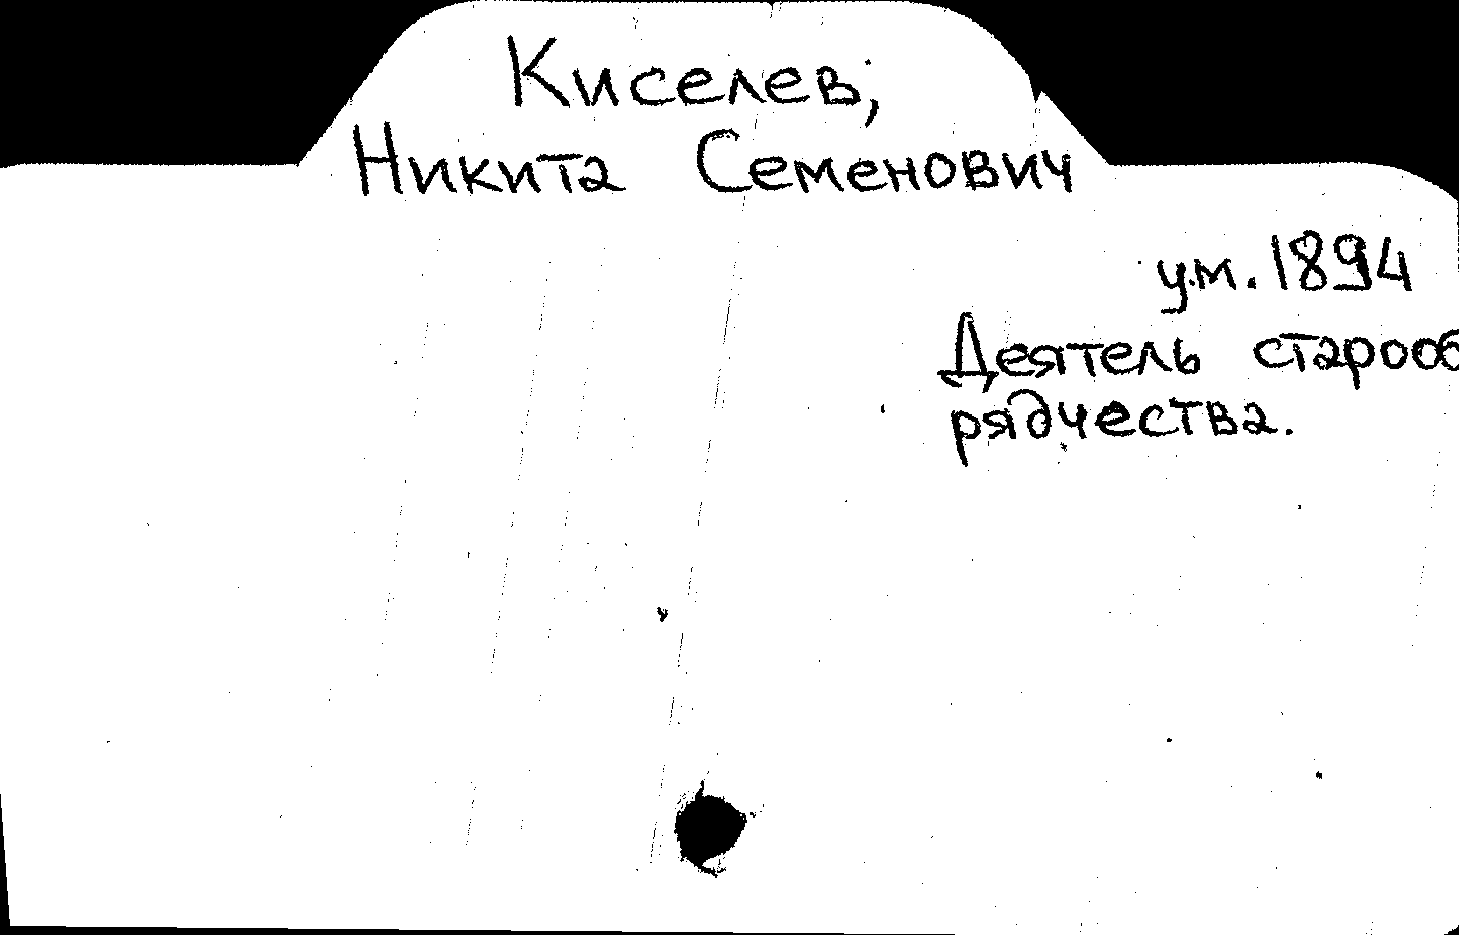 Киселев,
Никита Семенович
ум. 1894
Деятель старооб
рядчества.